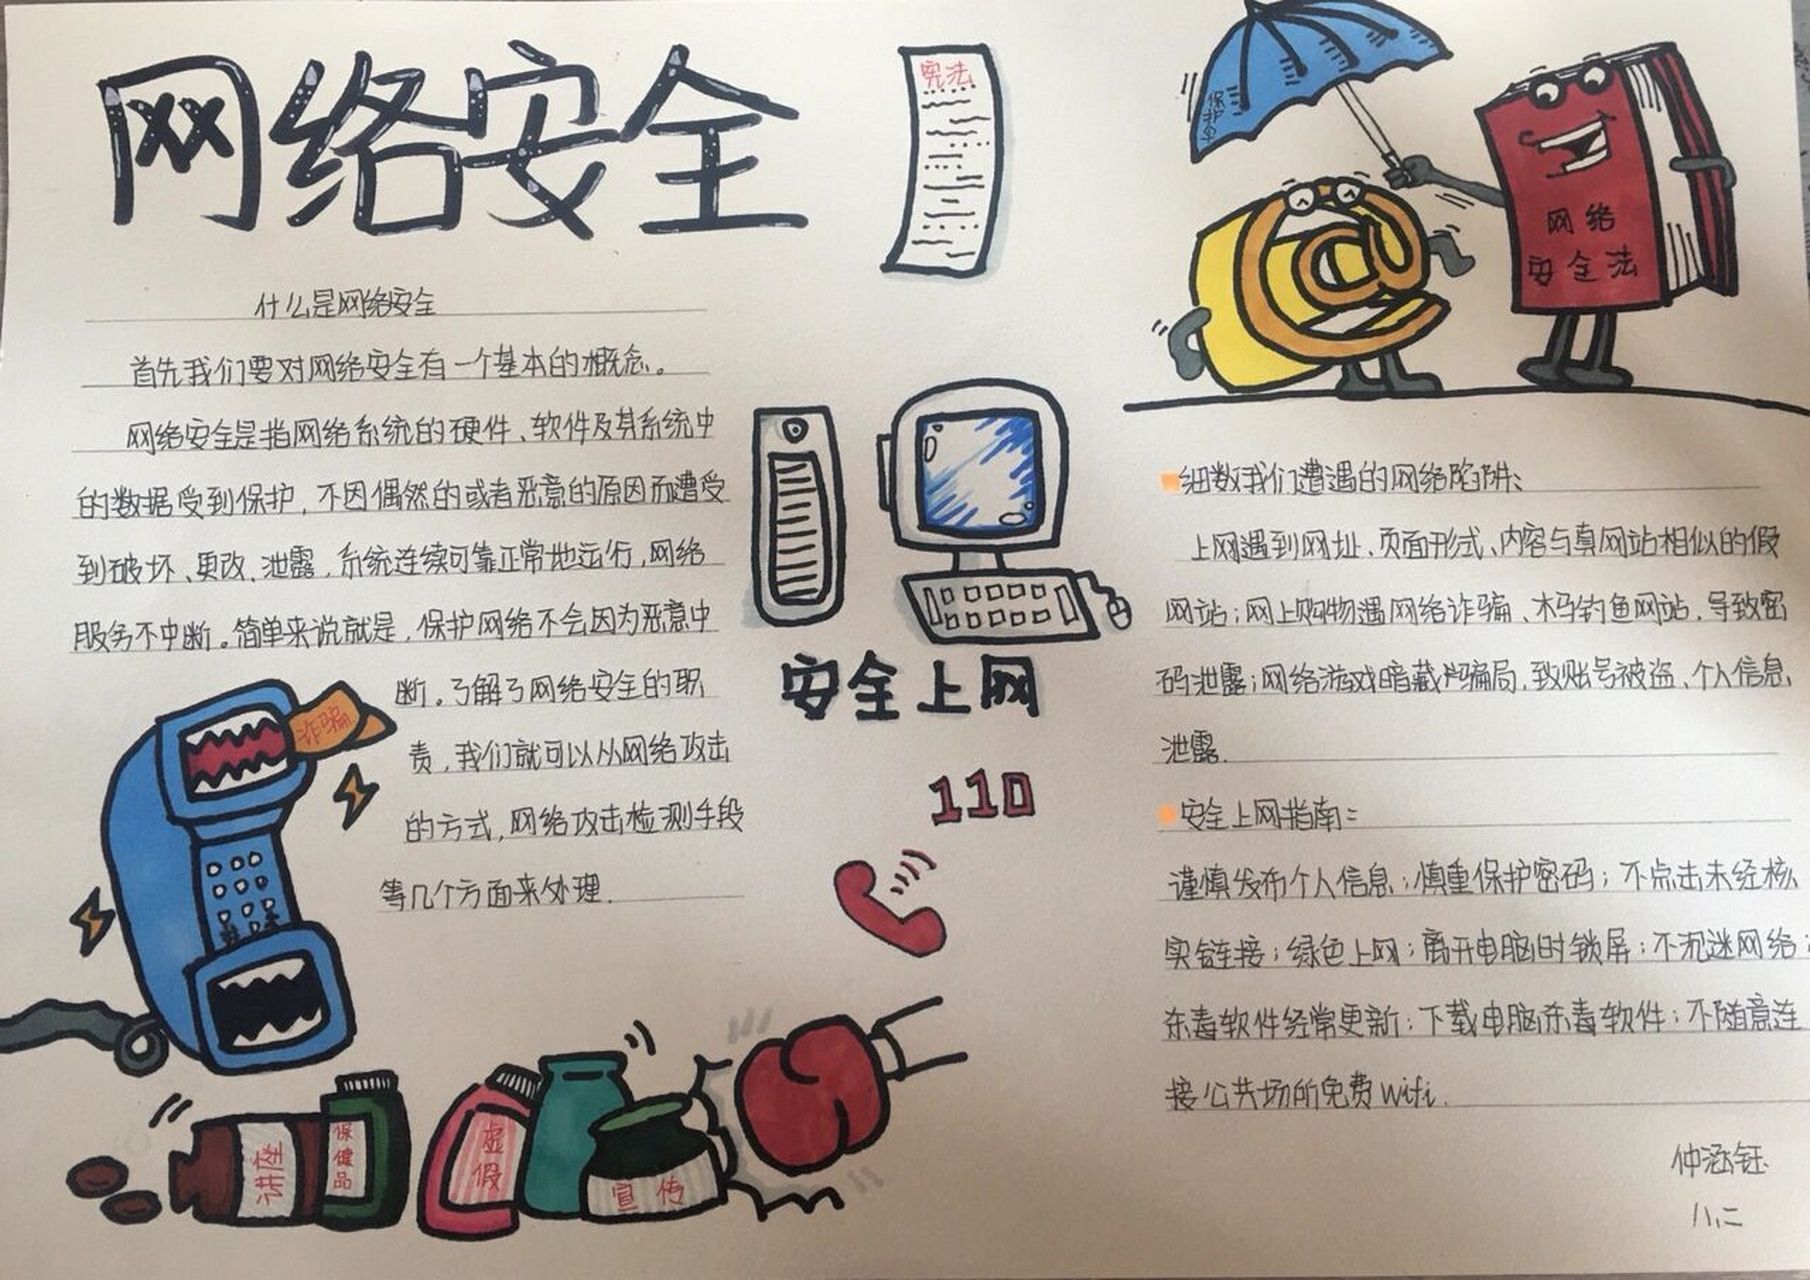 网络安全
宪法
保护伞
网络
安全法
什么是网络安全
首先我们要对网络安全有一个基本的概念。
网络安全是指网络系统的硬件、软件及其系统中
的数据受到保护,不因偶然的或者恶意的原因而遭受
到破坏、更改、泄露,系统连续可靠正常地运行,网络
服务不中断。简单来说就是,保护网络不会因为恶意中
断。了解了网络安全的职
责,我们就可以从网络攻击
的方式,网络攻击检测手段
等几个方面来处理.
诈骗
安全上网
110
讲座
保健品
虚假
宣传
细数我们遭遇的网络陷阱:
上网遇到网址、页面形式、内容与真网站相似的假
网站;网上购物遇网络诈骗、木马钓鱼网站,导致密
码泄露;网络游戏暗藏骗局,致账号被盗、个人信息
泄露.
安全上网指南:
谨慎发布个人信息;慎重保护密码;不点击未经核
实链接;绿色上网;离开电脑时锁屏;不沉迷网络;
杀毒软件经常更新;下载电脑杀毒软件;不随意连
接公共场所免费wifi.
仲涵钰
八.二